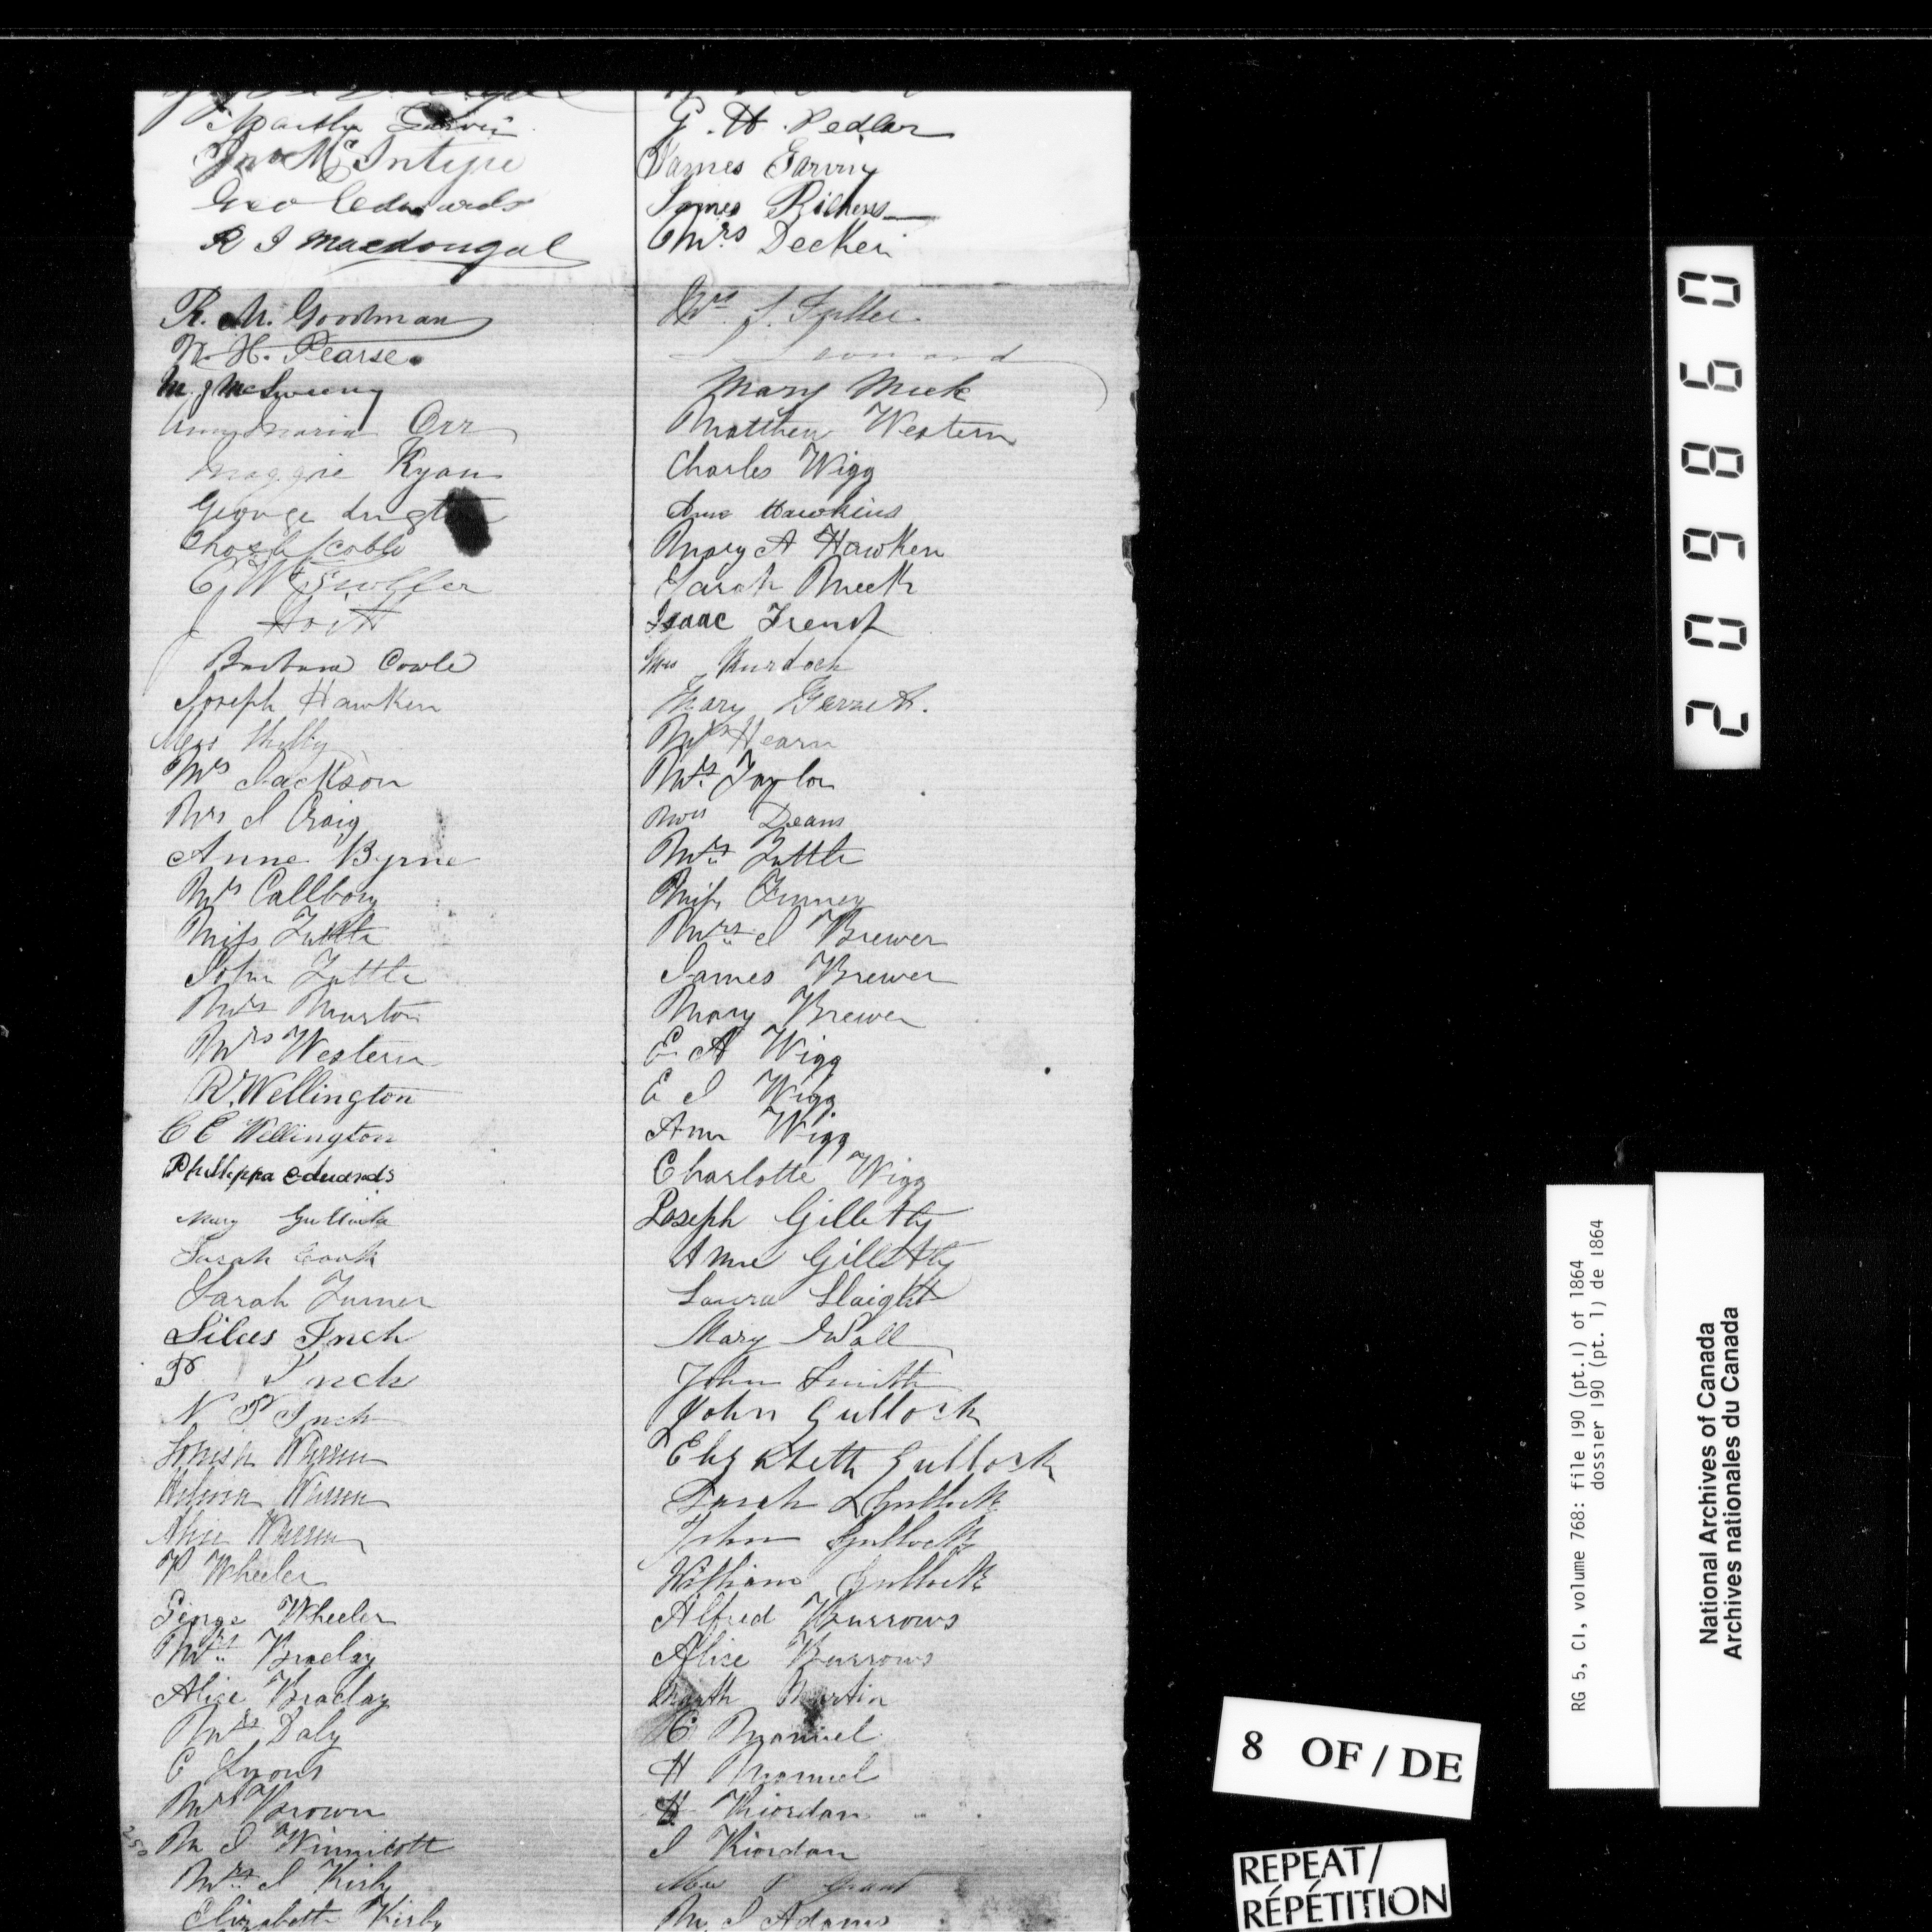 Martha
Jno McIntyre
Geo Edwards
R J Macdougal
R. M. Goodman
W. H. Pearse
M J McSweeny
Maria Orr
Maggie Ryan
George
Barbara Cowle
Joseph Hawken
Mrs
Mrs Jackson
Mrs J Craig
Anne Byrne
Mrs Callbory
Miss Tuttle
John Tuttle
Mrs Murton
Mrs Western
R. Wellington
C C Wellington
Philippa Edwards
Mary Gullock
Sarah Cook
Sarah Turner
Silas Inch
P Inch
N P Inch
Louisa Warren
Warren
Alice Warren
P Wheeler
George Wheeler
Mrs Braclay
Alice Braclay
Mrs Daly
C Lyons
Mrs Brown
M J Winnicott
Mrs J Kirby
Elizabeth Kirby
G. H. Pedlar
James Garvin
James Richens
Mrs Decker
Mrs J. Fuller
Leonard
Mary Meek
Matthew Western
Charles Wigg
Ann Hawkins
Mary A Hawken
Sarah Meek
Isaac French
Mrs Murdoch
Mary Garnet.
Mrs Hearn
Mrs Taylor
Mrs Deans
Mrs Tuttle
Miss Finney
Mrs J Brewer
James Brewer
Mary Brewer
E A Wigg
E J Wigg
Ann Wigg
Charlotte Wigg
Joseph Gilletly
Anne Gilletly
Laura Slaight
Mary Wall
John Smith
John Gullock
Elizabeth Gullock
Sarah L Gullock
John Gullock
William Gullock
Alfred Burrows
Alice Burrows
Martin
C Manuel
H Manuel
H Riordan
J Riordan
Mrs P Grant
M J Adams
209860
RG 5, C1, volume 768: file 190 (pt.1) of 1864
dossier 190 (pt. 1) de 1864
National Archives of Canada
Archives nationales du Canada
8 OF / DE
REPEAT/
RÉPÉTITION